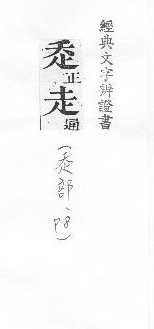 經典文字辨證書
𧺆正
走通
(𧺆部、P8)